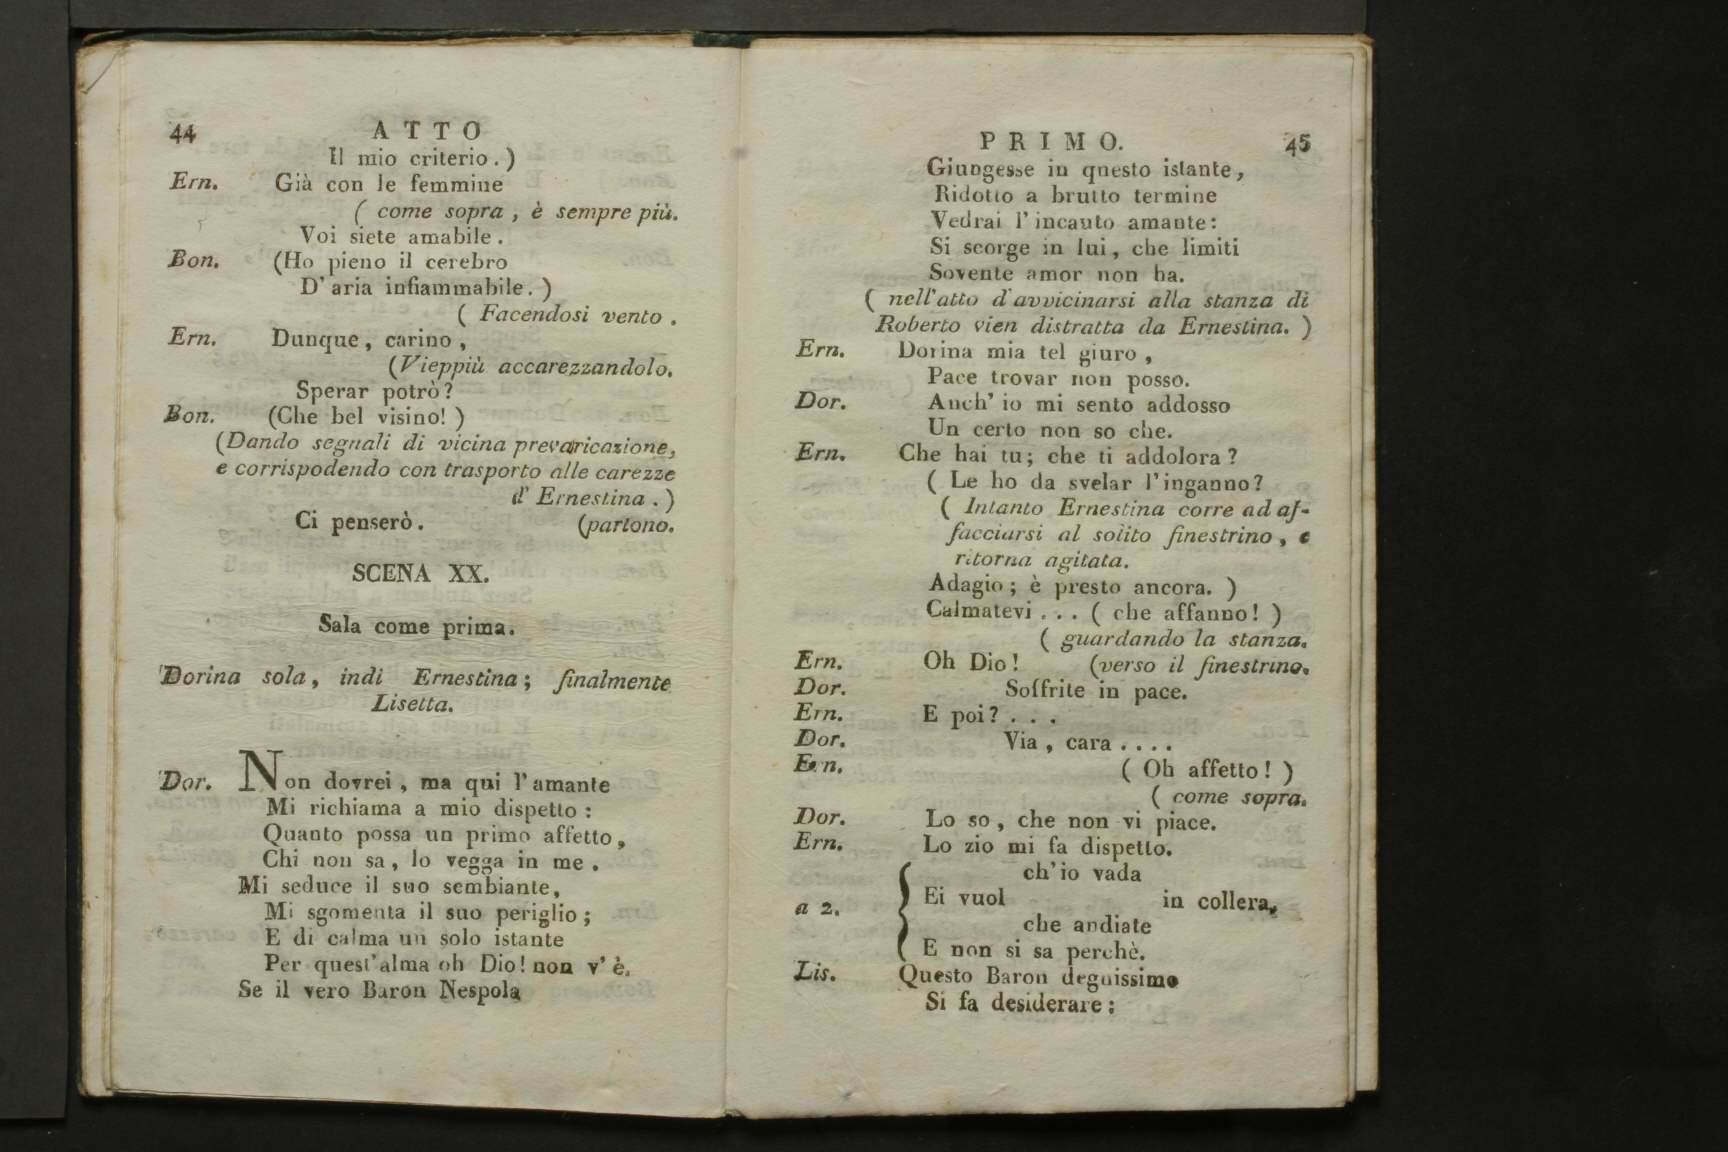 44 ATTO
Il mio criterio.)
Ern. Già con le femmine
( come sopra, è sempre più.
Voi siete amabile.
Bon. (Ho pieno il cerebro
D' aria infiammabile.)
( Facendosi vento.
Ern. Dunque, carino,
(Vieppiù accarezzandolo.
Sperar potrò?
Bon. (Che bel visino!)
(Dando segnali di vicina prevaricazione,
e corrispodendo con trasporto alle carezze
d' Ernestina.)
Ci penserò. (partono.
SCENA XX.
Sala come prima.
Dorina sola, indi Ernestina; finalmente
Lisetta.
Dor. Non dovrei, ma qui l'amante
Mi richiama a mio dispetto:
Quanto possa un primo affetto,
Chi non sa, lo vegga in me.
Mi seduce il suo sembiante,
Mi sgomenta il suo periglio;
E di calma un solo istante
Per quest'alma oh Dio! non v'è.
Se il vero Baron Nespola
PRIMO. 45
Giungesse in questo istante,
Ridotto a brutto termine
Vedrai l'incauto amante:
Si scorge in lui, che limiti
Sovente amor non ha.
( nell'atto d'avvicinarsi alla stanza di
Roberto vien distratta da Ernestina. )
Ern. Dorina mia tel giuro,
Pace trovar non posso.
Dor. Anch' io mi sento addosso
Un certo non so che.
Ern. Che hai tu; che ti addolora?
( Le ho da svelar l'inganno?
( Intanto Ernestina corre ad af-
facciarsi al solito finestrino, e
ritorna agitata.
Adagio; è presto ancora. )
Calmatevi... ( che affanno! )
( guardando la stanza.
Ern. Oh Dio! (verso il finestrino.
Dor. Soffrite in pace.
Ern. E poi?...
Dor. Via, cara....
Ern. ( Oh affetto! )
( come sopra.
Dor. Lo so, che non vi piace.
Ern. Lo zio mi fa dispetto.
ch'io vada
a 2. { Ei vuol in collera,
che andiate
E non si sa perchè.
Lis. Questo Baron degnissimo
Si fa desiderare;